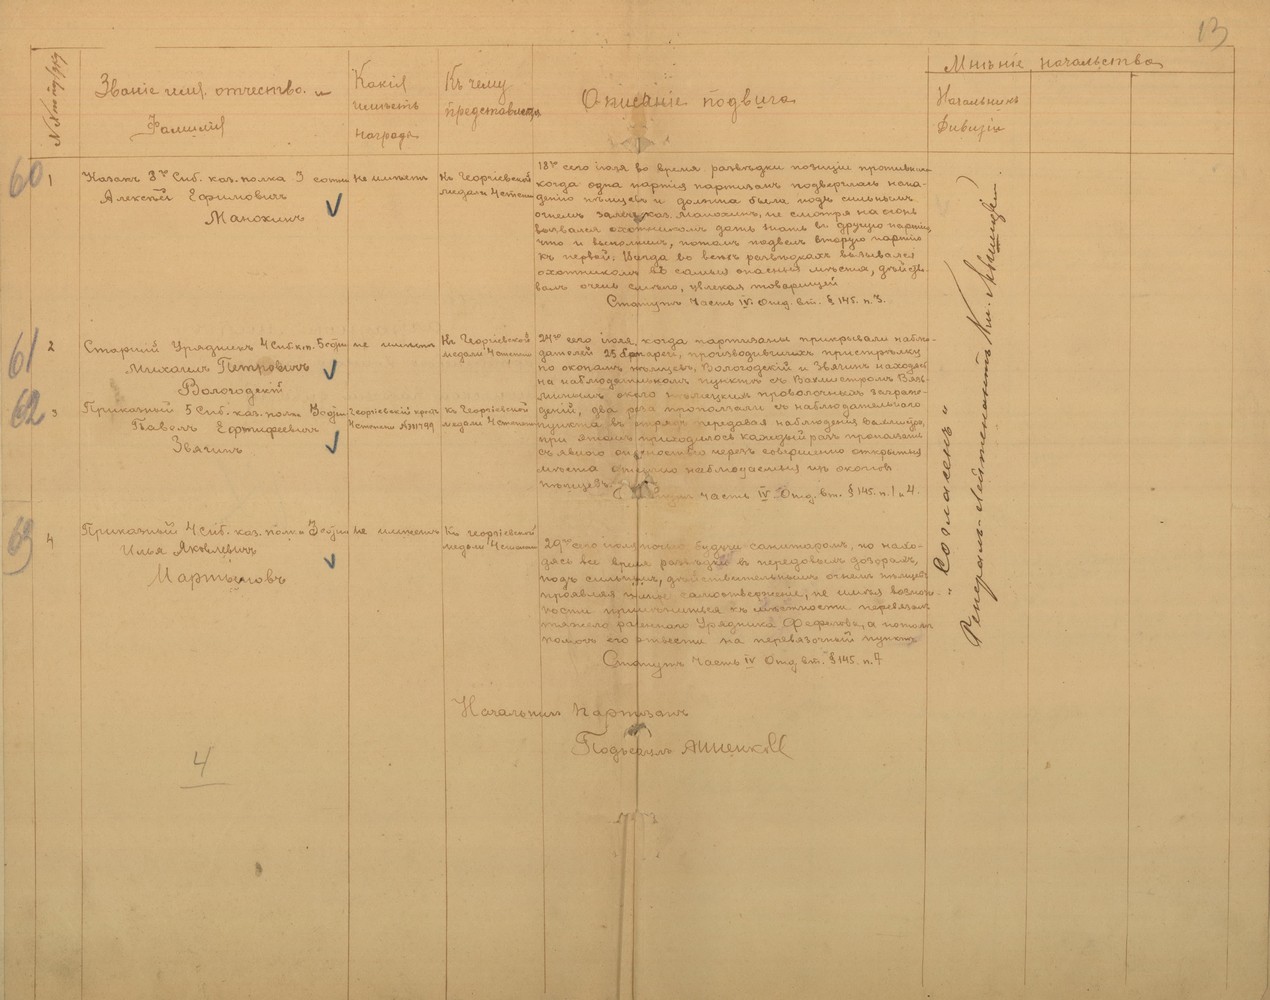 13
Званіе имя, отчество и
Фамилія
Какія
имѣетъ
награда
Къ чему
представляется
Описаніе подвига
Мнѣніе начальства
Начальникъ
Дивизіи
60
1
Казакъ 3го Сиб. каз. полка 3 сотни
Алексѣй Ефимовичъ
Манохинъ
не имѣетъ
Къ Георгіевской
медали 4 степени
18го сего іюля во время развѣдки позиціи противника
когда одна партія партизанъ подверглась напа-
денію нѣмцевъ и должна была подъ сильнымъ
огнемъ каз. Манохинъ, не смотря на огонь
вызвался охотникомъ дать знать въ другую партію,
что и выполнилъ, потомъ подвелъ вторую партію
къ первой. Всегда во всѣхъ развѣдкахъ вызывался
охотникомъ въ самыя опасныя мѣста, дѣйство-
валъ очень смѣло, увлекая товарищей
Статутъ Часть IV. Отд. вт. § 145. п. 3.
61
2
Старшій Урядникъ 4 Сиб. к. п. 5 сотни
Михаилъ Петровичъ
Вологодскій
не имѣетъ
Къ Георгіевской
медали 4 степени
24го сего іюля, когда партизаны прикрывали наблю-
дателей 25 батареи, производившихъ пристрѣлку
по окопамъ нѣмцевъ, Вологодскій и Звягинъ находясь
на наблюдательномъ пунктѣ съ Вахмистромъ
около нѣмецкихъ проволочныхъ загражде-
деній, два раза проползали съ наблюдательнаго
пункта передавая наблюденія
при этомъ приходилось каждый разъ проползать
съ явною опасностью черезъ совершенно открытыя
мѣста отлично наблюдаемыя изъ окоповъ
нѣмцевъ.
Статутъ часть IV Отд. вт. § 145. п. 1 и 4.
62
3
Приказный 5 Сиб. каз. полка 3 сотни
Павелъ
Звягинъ
Георгіевскій крестъ
4 степени
Къ Георгіевской
медали 4 степени
63
4
Приказный 4 Сиб. каз. полка 3 сотни
Илья Яковлевичъ
Мартыновъ
не имѣетъ
Къ георгіевской
медали 4 степени
29го сего іюля ночью будучи санитаромъ, но нахо-
дясь все время развѣдки въ передовомъ дозорѣ,
подъ сильнымъ, дѣйствительнымъ огнемъ нѣмцевъ
проявляя самоотверженіе, не имѣя возмож-
ности примѣниться къ мѣстности перевязалъ
тяжело раненаго Урядника Фефелова, а потомъ
помогъ его отвести на перевязочный пунктъ
Статутъ часть IV Отд. вт. § 145. п. 7
Начальникъ Партизанъ
Подъесаулъ Анненковъ
4
"Согласенъ"
Генералъ-Лейтенантъ